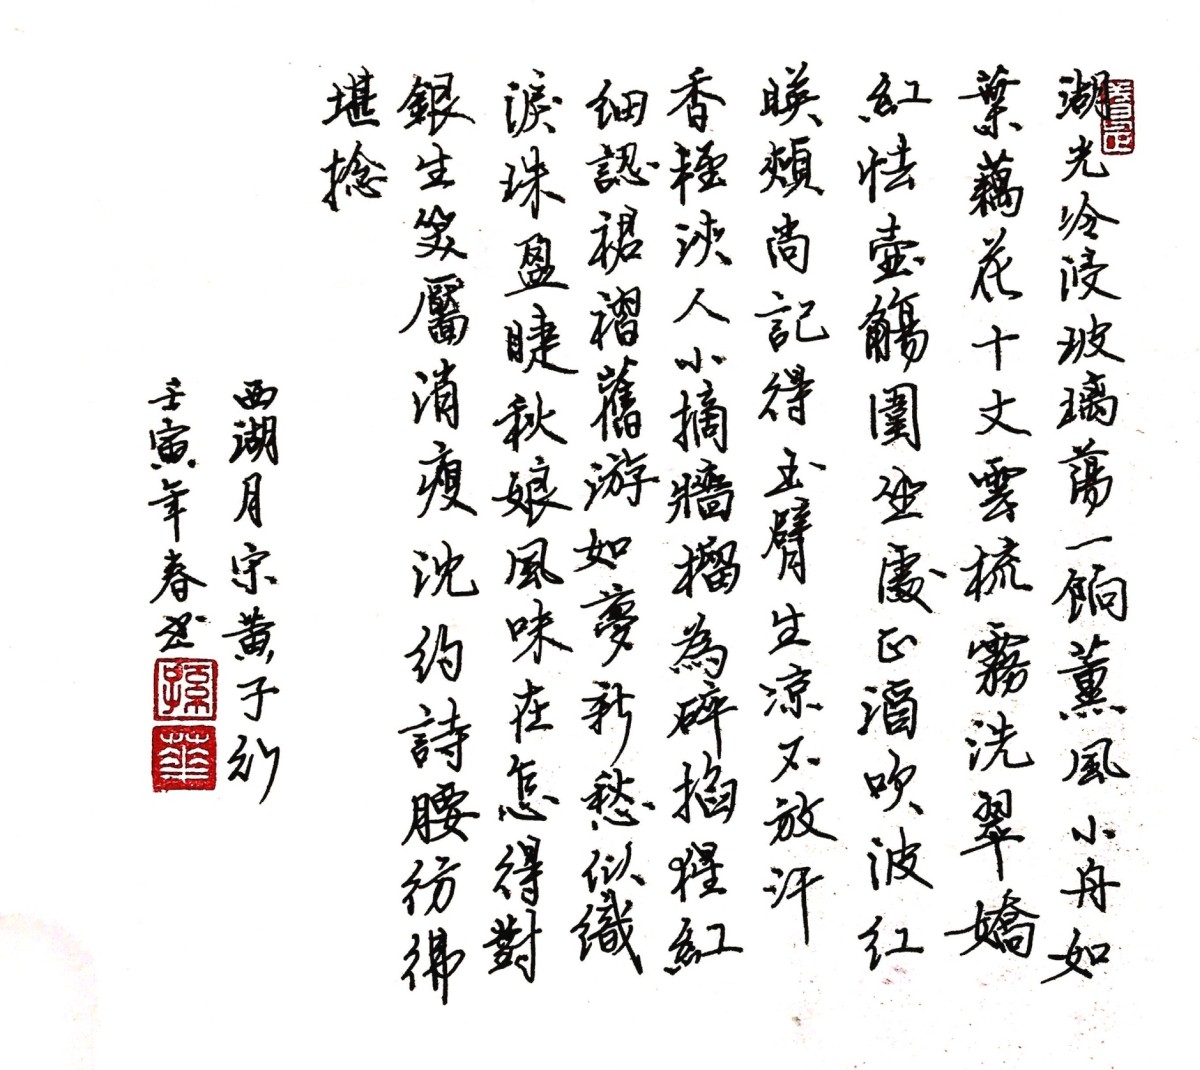 湖光冷浸玻璃蕩一餉薰風小舟如
葉藕花十丈雲梳霧洗翠嬌
紅怯壺觴圍坐處正酒吹波紅
映頰尚記得玉臂生凉不放汗
香輕浹人小摘牆榴為碎掐猩紅
細認裙褶舊游如夢新愁似織
淚珠盈睫秋娘風味在怎得對
銀生笑靨消瘦沈約詩腰彷彿
堪捻
西湖月宋黃子行
壬寅年春書
孫華